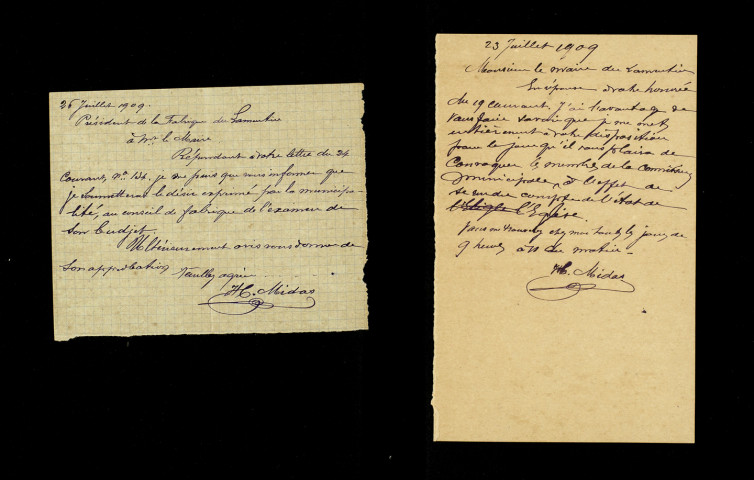 26 Juillet 1909.
Président de la Fabrique du Lamentin
à Mr le Maire
Répondant à votre lettre du 24
Courant, No 134, je ne puis que vous informer que
je soumetterai le désir exprimé par la municipa-
lité, au conseil de fabrique de l'examen de
son budget.
Ultérieurement avis vous donner de
son approbation Veuillez agréer
H. Midas
23 Juillet 1909
Monsieur le Maire du Lamentin
En réponse à votre honorée
du 19 Courant, J'ai l'avantage de
vous faire savoir que je me mets
entièrement à votre disposition
pour le jour qu'il vous plaira de
Convoquer le membre de la Comission
Municipale, à l'effet de
se rendre compte de l'État de
l'Eglise.
Vous me trouverez chez moi tout les jours de
9 heures à 10 du matin -
H. Midas